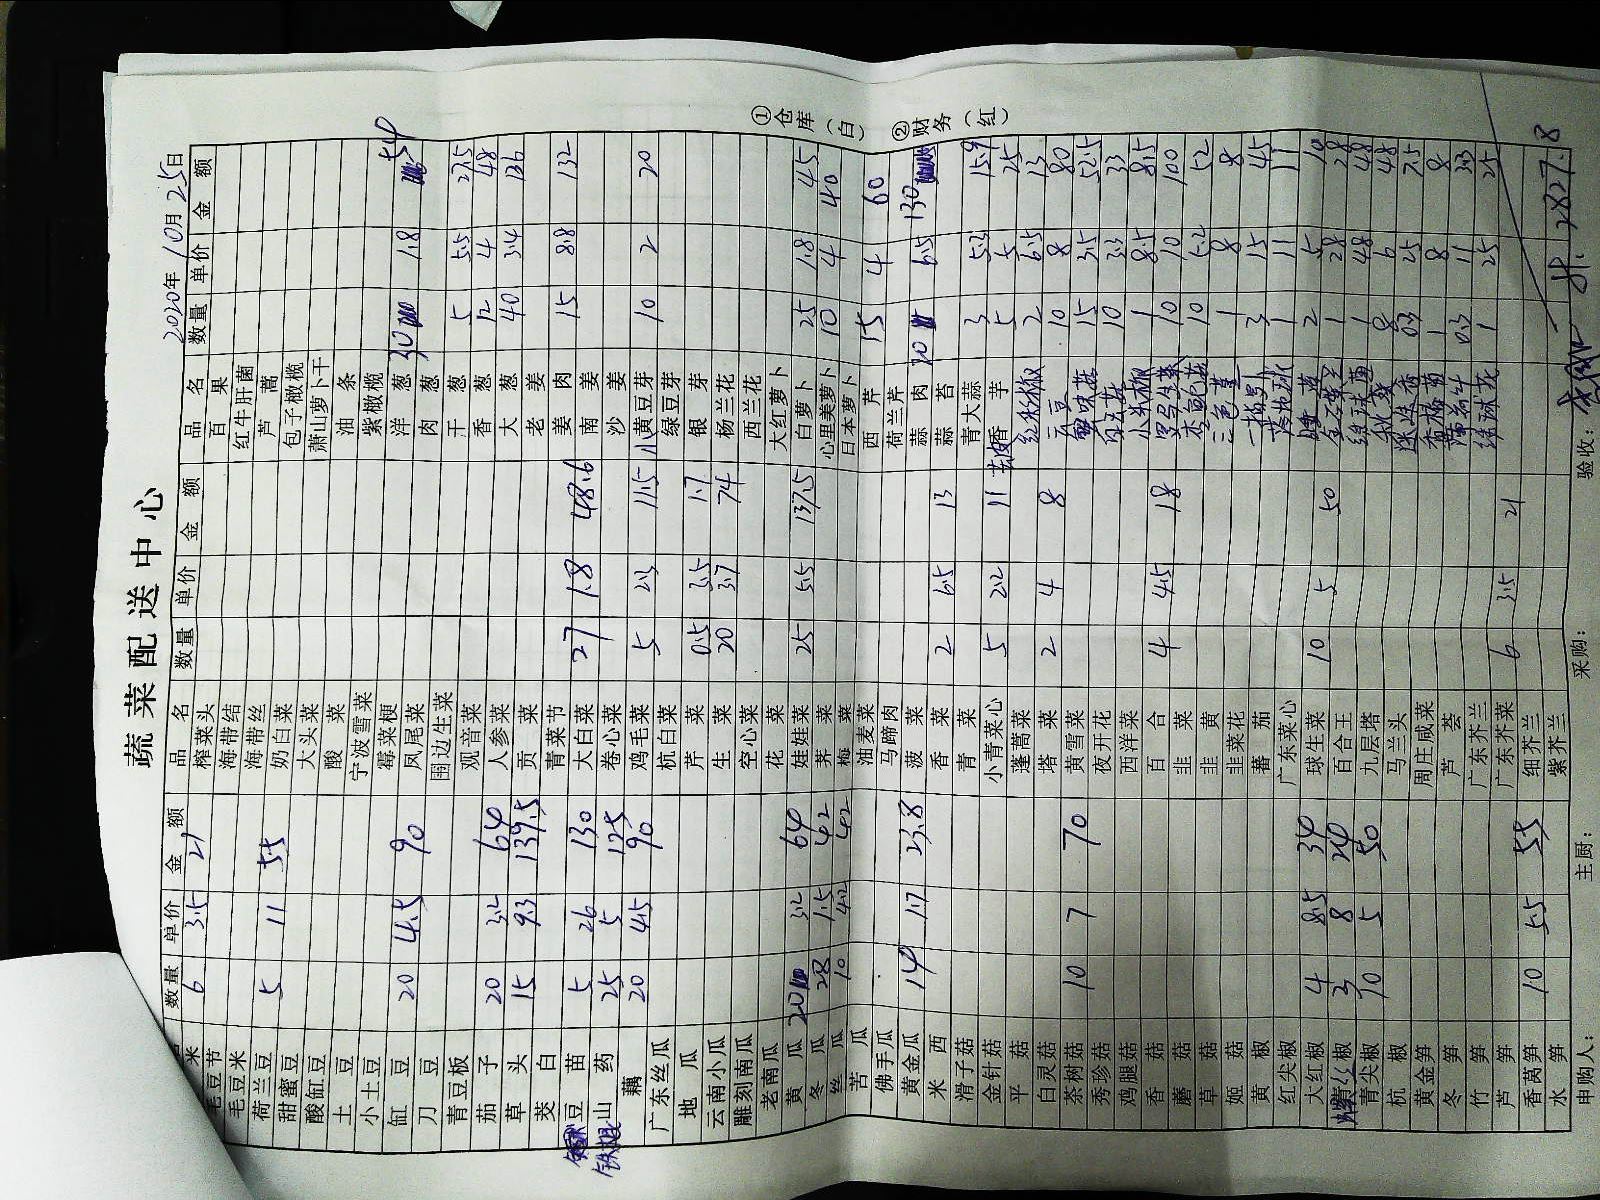 蔬菜配送中心
2020年10月25日
数量 单价 金额 品名 数量 单价 金额 品名 数量 单价 金额
米 6 3.5 21 榨菜头 百果
毛豆节 海带结 红牛肝菌
毛豆米 海带丝 芦蒿
荷兰豆 5 11 55 奶白菜 包子橄榄
甜蜜豆 大头菜 萧山萝卜干
酸缸豆 酸菜 油条
土豆 宁波雪菜 紫橄榄
小土豆 霉菜梗 洋葱 30 1.8 54
缸豆 20 4.5 90 凤尾菜 肉葱
刀豆 围边生菜 干葱 5 5.5 27.5
青豆板 观音菜 香葱 12 4 48
茄子 20 3.2 64 人参菜 大葱 40 3.4 136
草头 15 9.3 139.5 贡菜 老姜
茭白 青菜节 姜肉 15 8.8 132
豆苗 5 26 130 大白菜 27 1.8 48.6 南姜
铁棍山药 25 5 125 卷心菜 沙姜
藕 20 4.5 90 鸡毛菜 5 2.3 11.5 小黄豆芽 10 2 20
广东丝瓜 杭白菜 绿豆芽
地瓜 芹菜 0.5 3.5 1.7 银芽
云南小瓜 生菜 20 3.7 74 杨兰花
雕刻南瓜 空心菜 西兰花
老南瓜 花菜 大红萝卜
黄瓜 20 3.2 64 娃娃菜 25 5.5 137.5 白萝卜 25 1.8 45
冬瓜 28 1.5 42 荠菜 心里美萝卜 10 4 40
丝瓜 10 4.2 42 梅菜 日本萝卜
苦瓜 油麦菜 西芹 15 4 60
佛手瓜 马蹄肉 荷兰芹
黄金瓜 14 1.7 23.8 菠菜 蒜肉 20 6.5 130
西米 香菜 2 6.5 13 蒜苔
滑子菇 青菜 青大蒜 3 5.3 15.9
金针菇 小青菜心 5 2.2 11 去皮香芋 5 5 25
平菇 蓬蒿菜 2 6.5 13
白灵菇 塔菜 2 4 8 云豆 10 8 80
茶树菇 10 7 70 黄雪菜 蟹味菇 15 3.5 52.5
秀珍菇 夜开花 白玉菇 10 3.3 33
鸡腿菇 西洋菜 小米椒 1 8.5 8.5
香菇 百合 4 4.5 18 罗马生菜 10 10 100
蘑菇 韭菜 杏鲍菇 10 5.2 52
草菇 韭黄 三色堇 1 8 8
姬菇 韭菜花 3 15 45
黄椒 蕃茄 1 11 11
红尖椒 广东菜心 2 5 10
大红椒 4 8.5 34 球生菜 10 5 50 1 28 28
椒 3 8 24 百合王 1 48 48
青尖椒 10 5 50 九层塔 8 6 48
杭椒 马兰头 0.3 25 7.5
黄金笋 周庄咸菜 1 8 8
冬笋 芦荟 0.3 11 3.3
竹笋 广东芥兰 1 25 25
芦笋 广东芥菜 6 3.5 21
香莴笋 10 5.5 55 细芥兰
水笋 紫芥兰 2827.8
申购人： 主厨： 采购： 验收：
①仓库（白）
②财务（红）